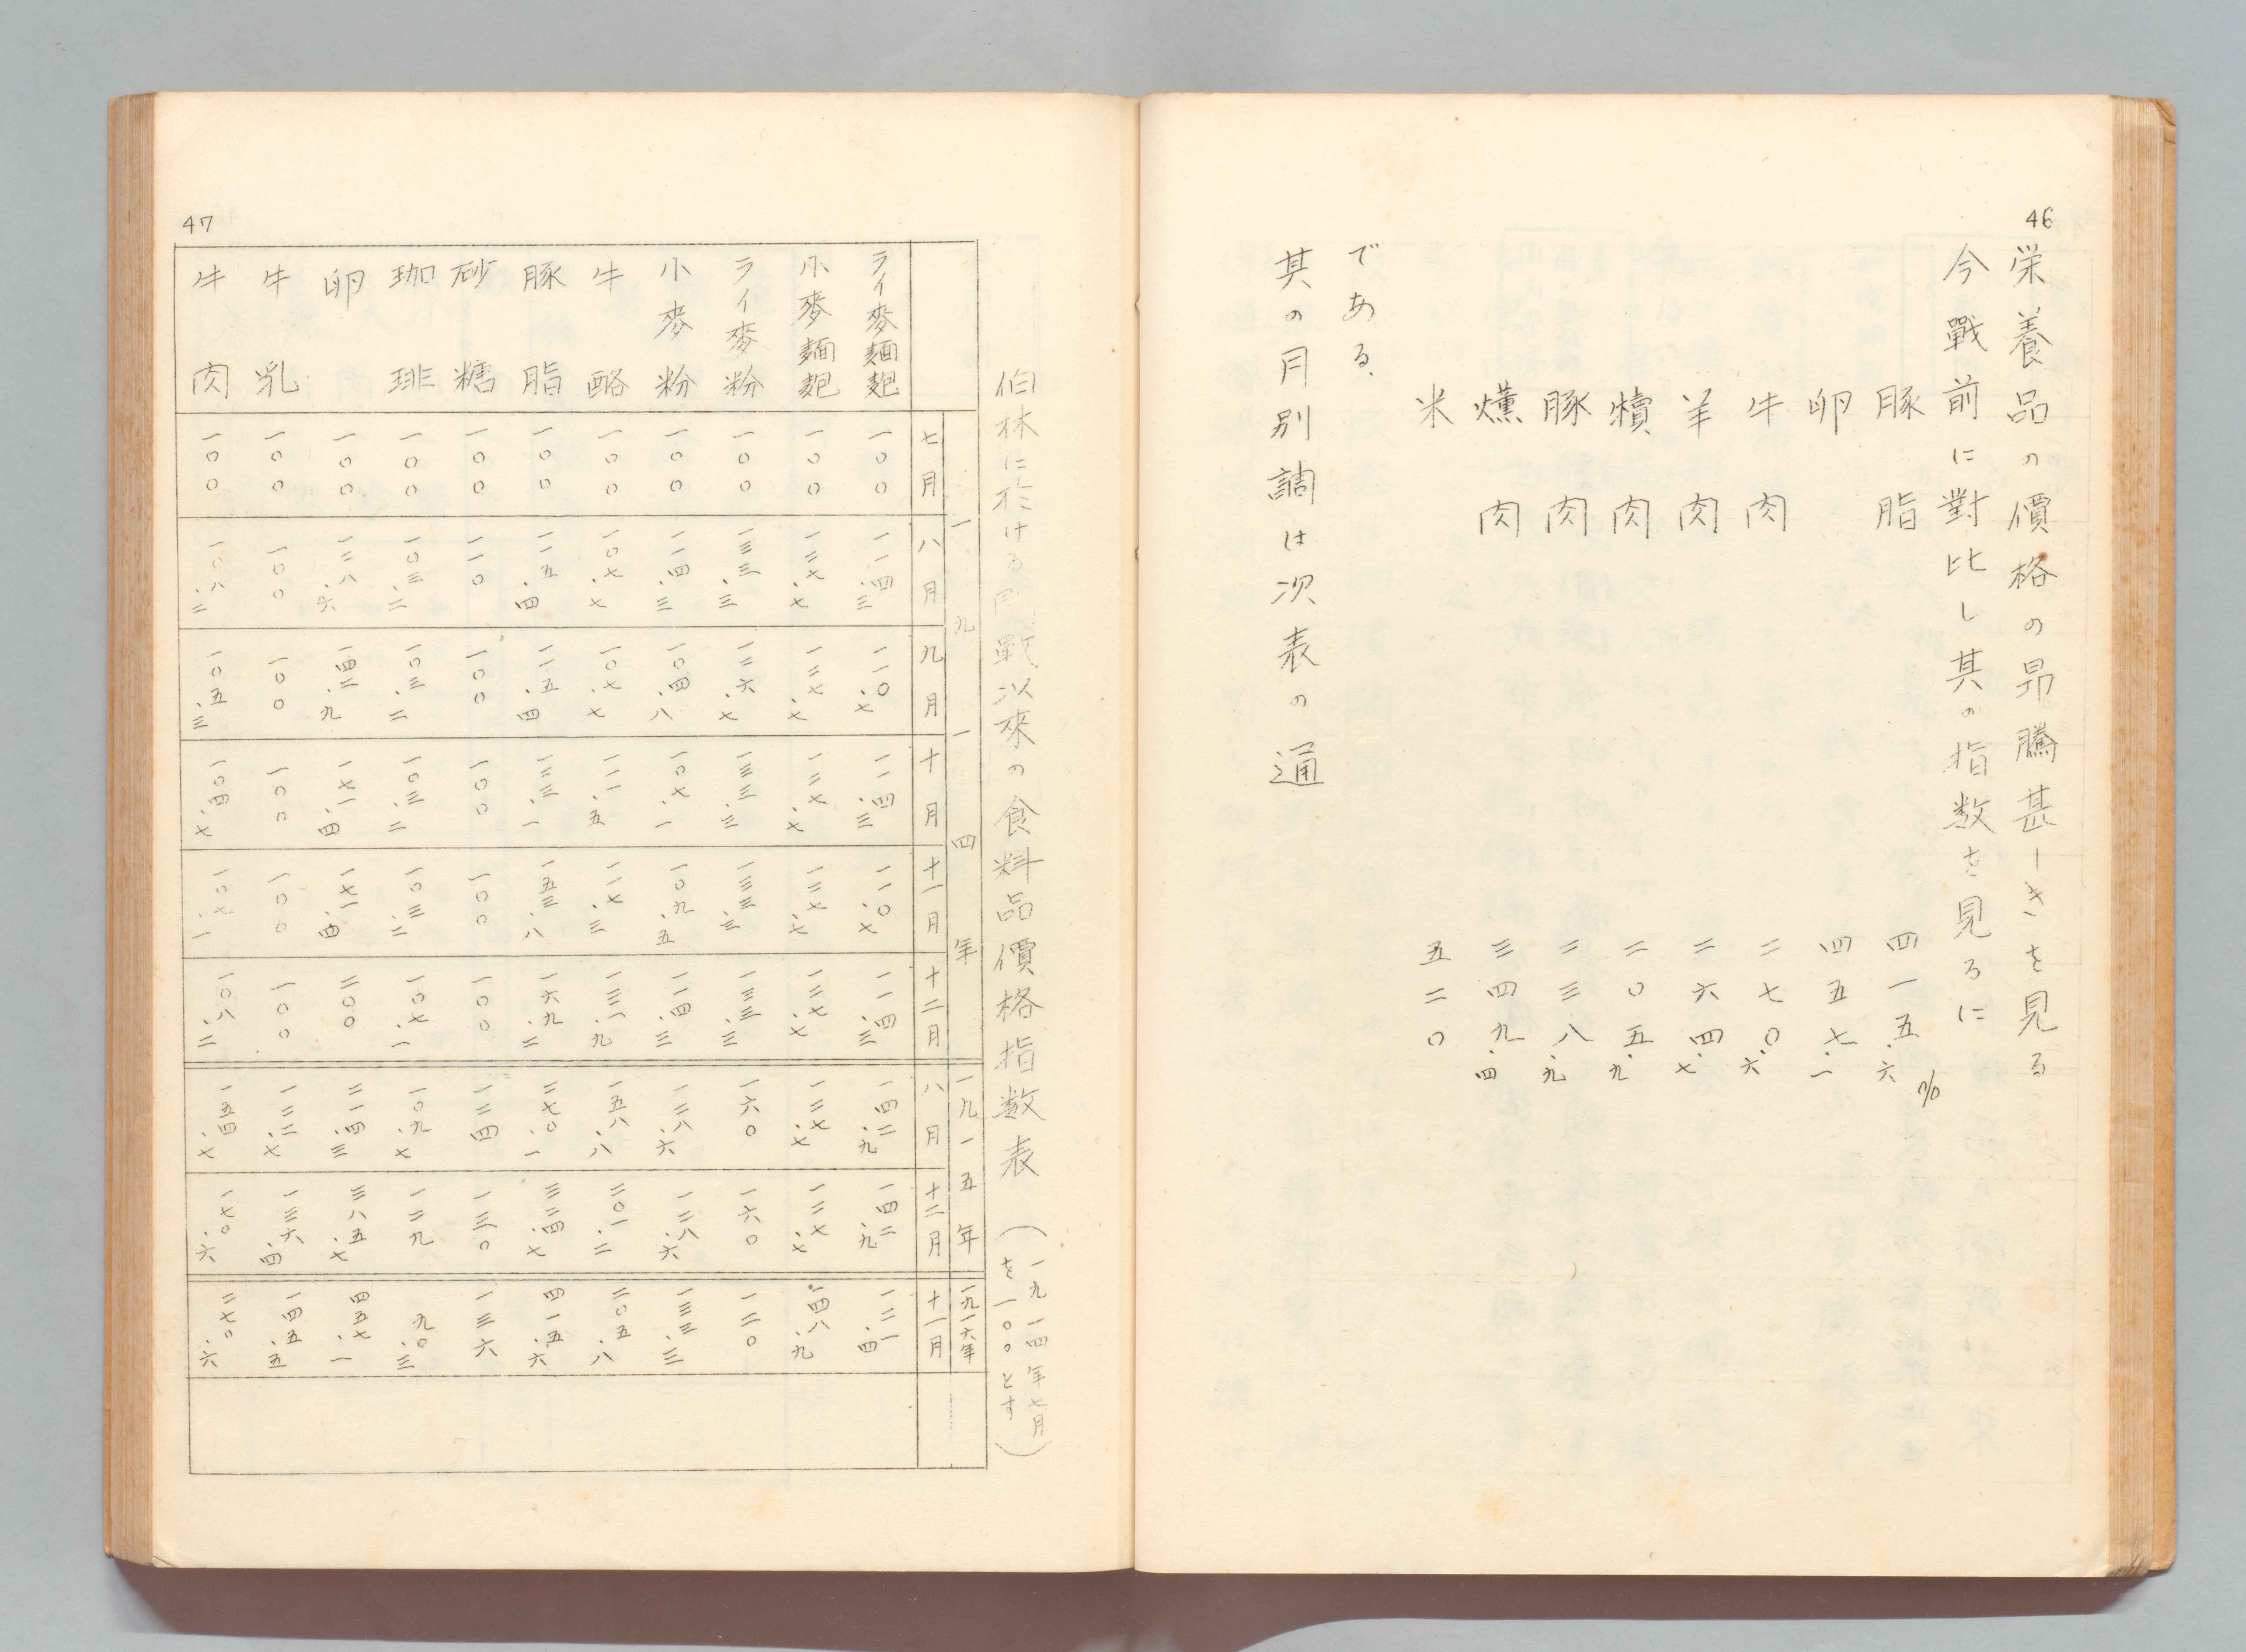 46
栄養品の價格の昻騰甚しきを見る
今戰前に對比し其の指数を見るに
豚脂 四一五.六%
卵 四五七.一
牛肉 二七〇.六
羊肉 二六四.七
犢肉 二〇五.九
豚肉 二三八.九
燻肉 三四九.四
米 五二〇
である.
其の月別調は次表の通
47
伯林に於ける開戰以來の食料品價格指数表 (一九一四年七月を一〇〇とす)
一九一四年 一九一五年 一九一六年
七月 八月 九月 十月 十一月 十二月 八月 十二月 十一月
ライ麥麵麭 一〇〇 一一四.三 一一〇.七 一一四.三 一一〇.七 一一四.三 一四二.九 一四二.九 一二一.四
小麥麵麭 一〇〇 一二七.七 一二七.七 一二七.七 一二七.七 一二七.七 一二七.七 一二七.七 一四八.九
ライ麥粉 一〇〇 一三三.三 一二六.七 一三三.三 一三三.三 一三三.三 一六〇 一六〇 一二〇
小麥粉 一〇〇 一一四.三 一〇四.八 一〇七.一 一〇九.五 一一四.三 一二八.六 一二八.六 一三三.三
牛酪 一〇〇 一〇七.七 一〇七.七 一一一.五 一一七.三 一三一.九 一五八.八 二〇一.二 二〇五.八
豚脂 一〇〇 一一五.四 一一五.四 一三三.一 一五三.八 一六九.二 二七〇.一 三二四.七 四一五.六
砂糖 一〇〇 一一〇 一〇〇 一〇〇 一〇〇 一〇〇 一二四 一三〇 一三六
珈琲 一〇〇 一〇三.二 一〇三.二 一〇三.二 一〇三.二 一〇七.一 一〇九.七 一二九 九〇.三
卵 一〇〇 一二八.六 一四二.九 一七一.四 一七一.四 二〇〇 二一四.三 三八五.七 四五七.一
牛乳 一〇〇 一〇〇 一〇〇 一〇〇 一〇〇 一〇〇 一二二.七 一三六.四 一四五.五
牛肉 一〇〇 一〇八.二 一〇五.三 一〇四.七 一〇七.一 一〇八.二 一五四.七 一七〇.六 二七〇.六